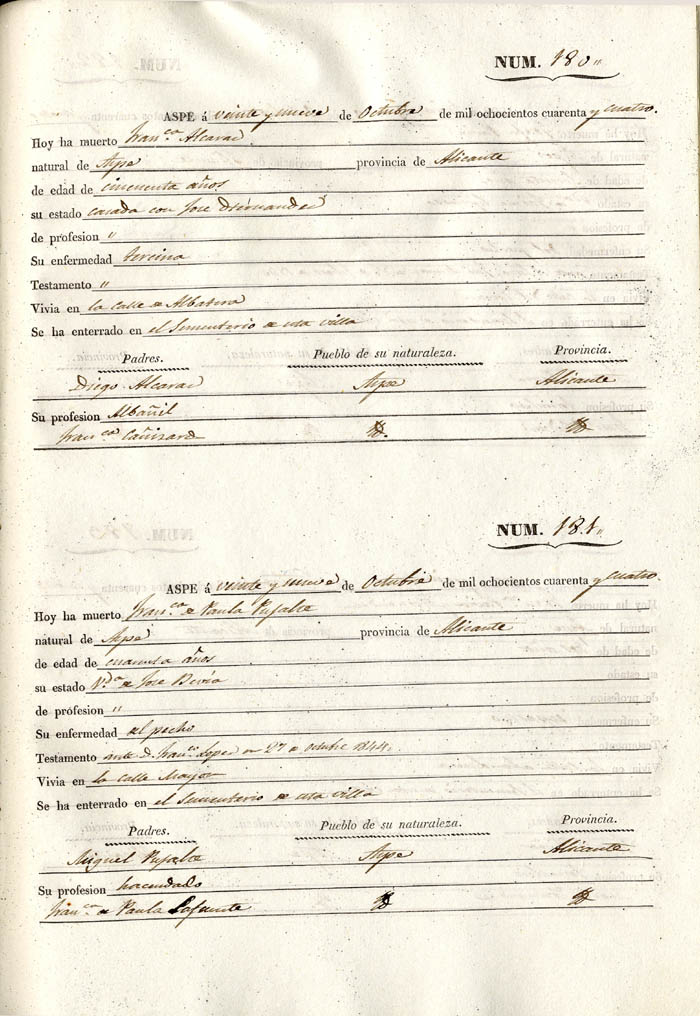 NUM. 180„
ASPE á veinte y nueve de Octubre de mil ochocientos cuarenta y cuatro.
Hoy ha muerto Fran.ca Alcaraz
natural de Aspe provincia de Alicante
de edad de cincuenta años
su estado casada con Jose Hernandez
de profesion „
Su enfermedad terciana
Testamento „
Vivia en la Calle de Albatera
Se ha enterrado en el Sementerio de esta villa
Padres. Pueblo de su naturaleza. Provincia.
Diego Alcaraz Aspe Alicante
Su profesion Albañil
Fran.ca Cañizares Yd. Yd.
NUM. 181„
ASPE á veinte y nueve de Octubre de mil ochocientos cuarenta y cuatro.
Hoy ha muerto Fran.ca de Paula Pujalte
natural de Aspe provincia de Alicante
de edad de cuarenta años
su estado V.da de Jose Bevia
de profesion „
Su enfermedad del pecho
Testamento ante D. Fran.co Lopez en 27 de octubre 1844.
Vivia en la calle Mayor
Se ha enterrado en el Sementerio de esta villa
Padres. Pueblo de su naturaleza. Provincia.
Miguel Pujalte Aspe Alicante
Su profesion hacendado
Fran.ca de Paula Lafuente Yd Yd